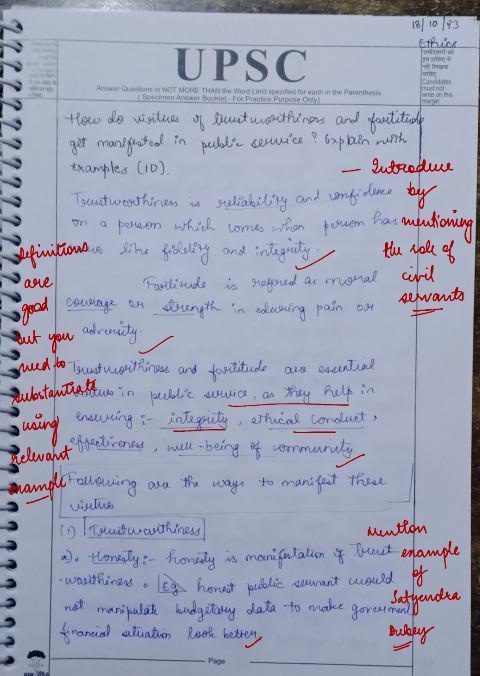 18/10/23
Ethics
UPSC
Answer Questions in NOT MORE THAN the Word Limit specified for each in the Parenthesis.
( Specimen Answer Booklet - For Practice Purpose Only)
उम्मीदवारों को
इस हाशिए में
नहीं लिखना
चाहिए
Candidates
must not
write on this
margin
How do virtues of trustworthiness and fortitude
get manifested in public service? Explain with
examples (10).
— Introduce
by
mentioning
the role of
civil
servants
Trustworthiness is reliability and confidence
on a person which comes when person has
like fidelity and integrity.
Fortitude is refered as moral
courage or strength in eduring pain or
adversity.
Definitions
are
good
but you
need to
substantiate
using
relevant
example
Trustworthiness and fortitude are essential
in public service, as they help in
ensuring :- integrity, ethical conduct,
effectiveness, well-being of community
Following are the ways to manifest these
virtues
(1) Trustworthiness
a). Honesty :- honesty is manifestation of trust
worthiness. Eg honest public servant would
not manipulate budgetary data to make government
financial situation look better.
Mention
example
of
Satyendra
Dubey
Page